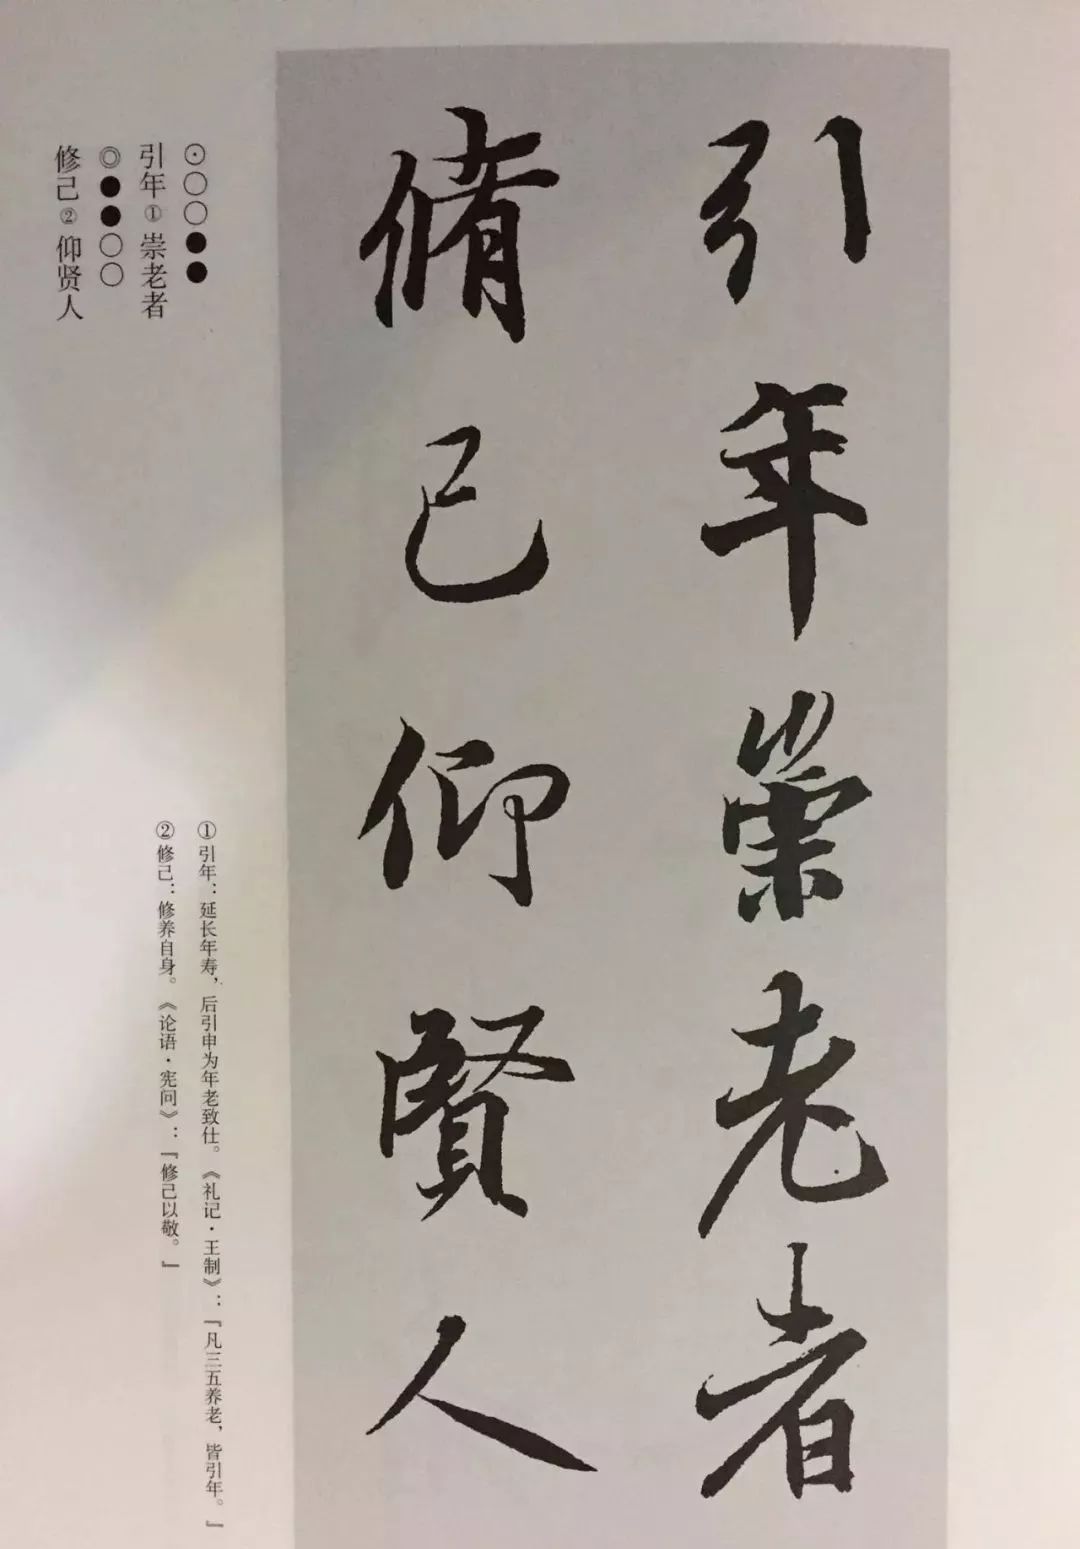 引年崇老者
脩己仰賢人
⊙○○●●
引年①崇老者
◎●●○○
修己②仰贤人
①引年：延长年寿，后引申为年老致仕。《礼记·王制》：『凡三五养老，皆引年。』
②修己：修养自身。《论语·宪问》：『修己以敬。』